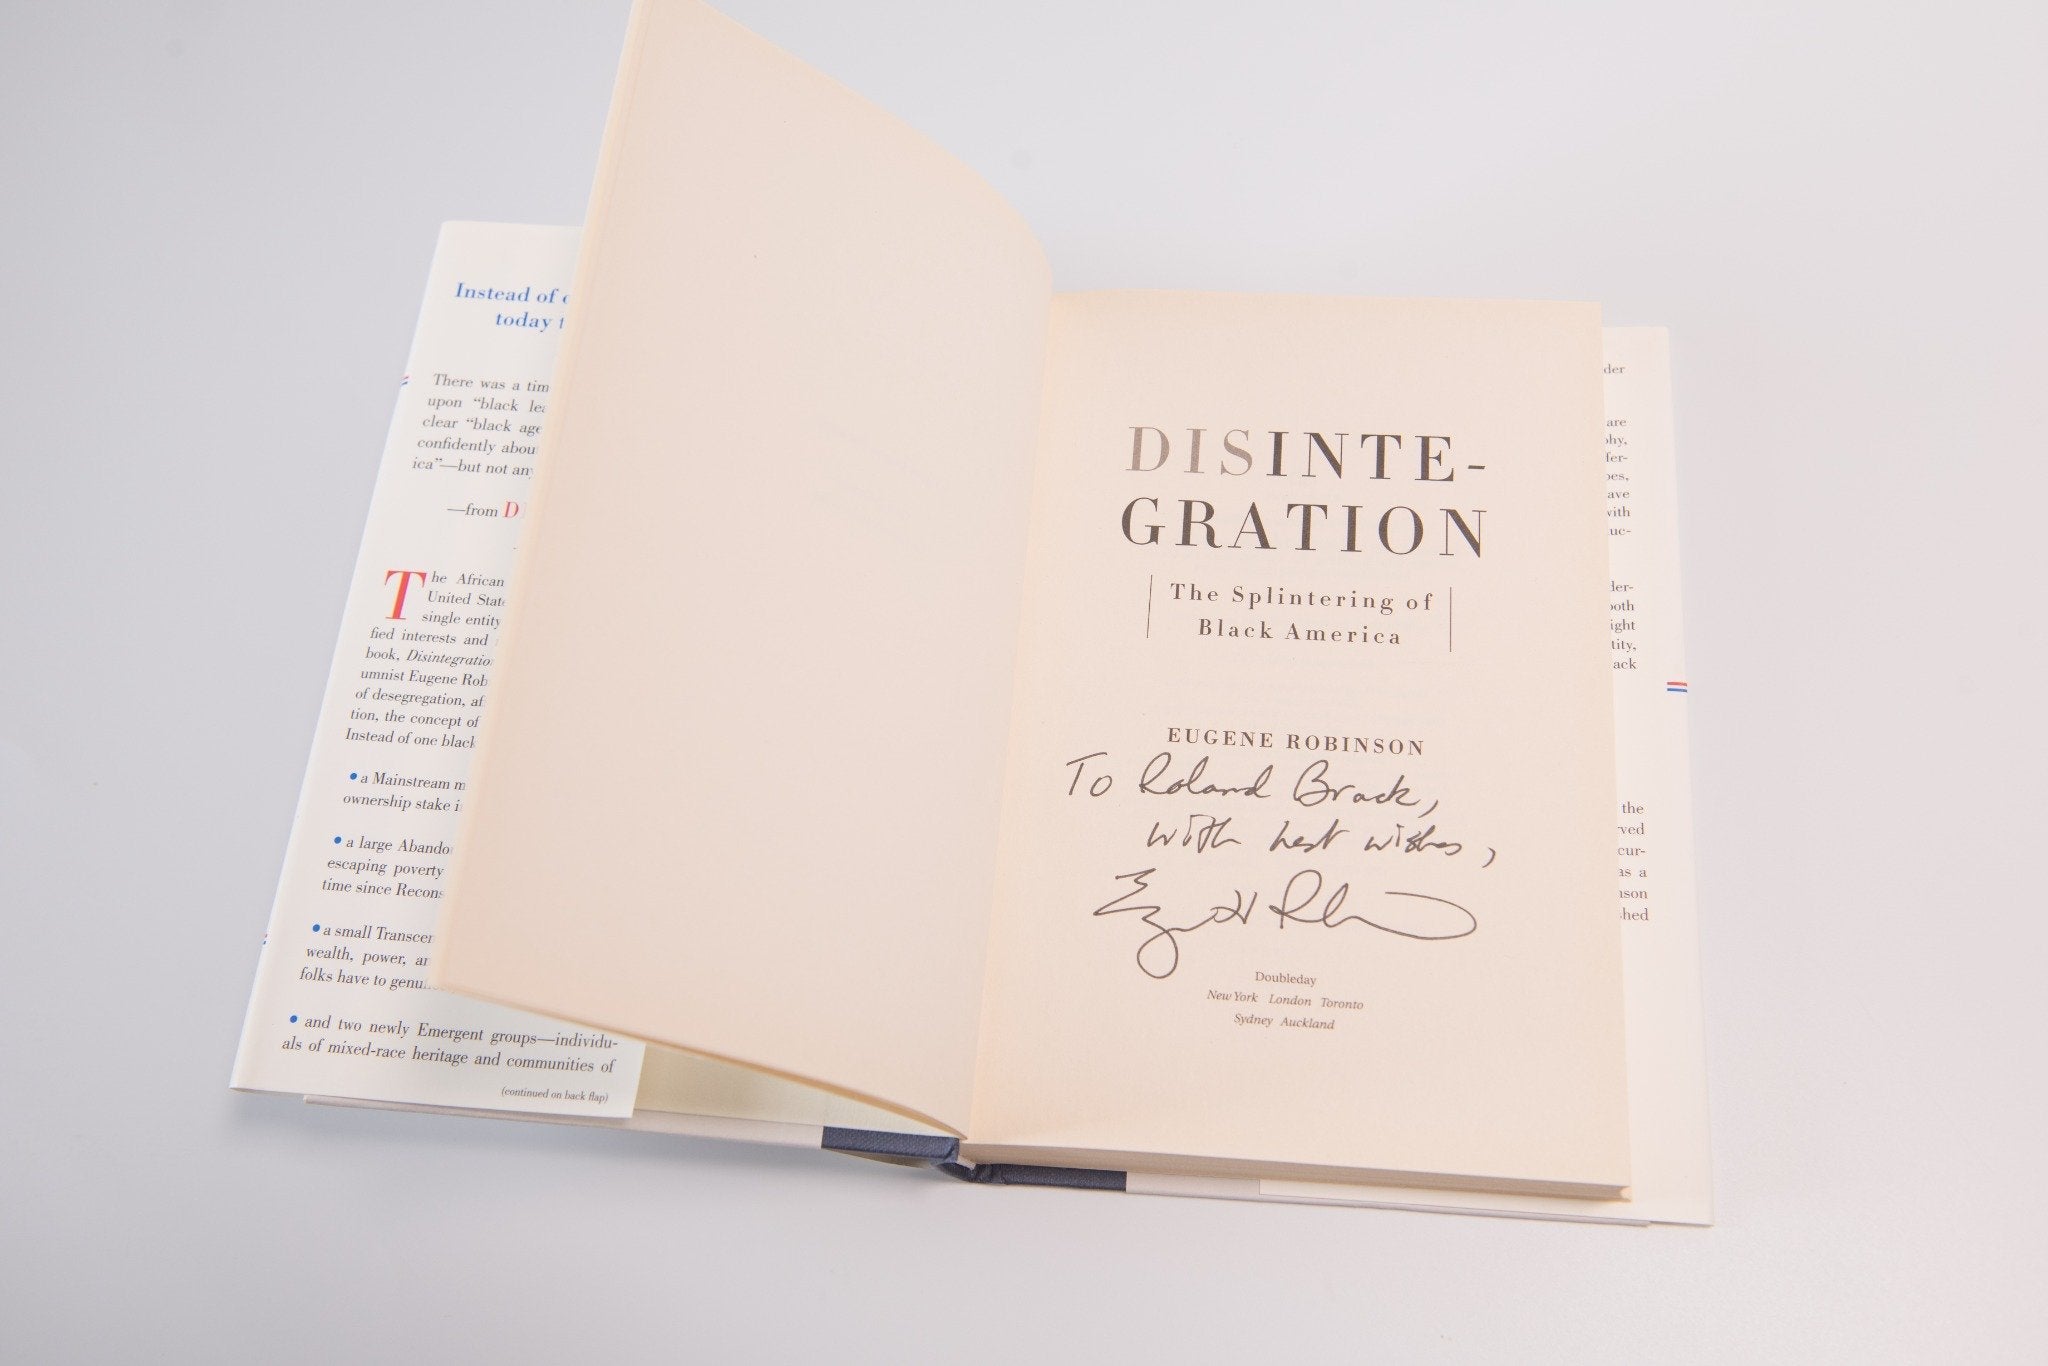 Instead of
today
There was a
upon “black
clear “black
confidently
ica”—but not
—from
The African
United
single entity
fied interests and
book,
umnist Eugene
of desegregation,
tion, the concept of
Instead of one
• a Mainstream
ownership stake
• a large
escaping poverty
time since
• a small
wealth, power,
folks have to
• and two newly Emergent groups—individu-
als of mixed-race heritage and communities of
(continued on back flap)
DISINTE-
GRATION
The Splintering of
Black America
EUGENE ROBINSON
To Roland Brack,
with best wishes,
Eugene H Robinson
Doubleday
New York London Toronto
Sydney Auckland
are
with
ack
the
as a